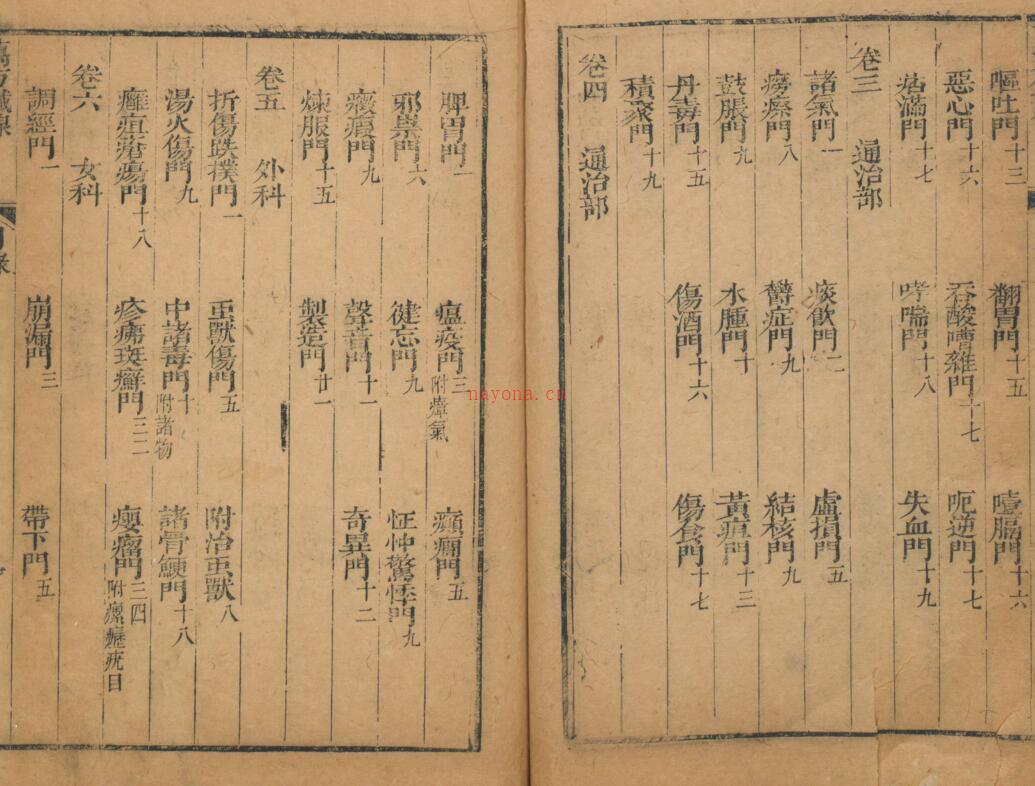 嘔吐門十三 翻胃門十五 噎膈門十六
惡心門十六 吞酸嘈雜門十七 呃逆門十七
痞滿門十七 哮喘門十八 失血門十九
卷三 通治部
諸氣門一 痰飲門二 虛損門五
癆瘵門八 欝症門九 結核門九
鼓脹門九 水腫門十 黃疸門十三
丹毒門十五 傷酒門十六 傷食門十七
積聚門十九
卷四 通治部
脾胃門一 瘟疫門三附瘴氣 癲癇門五
邪祟門六 健忘門九 怔忡驚悸門九
癥瘕門九 聲音門十一 奇異門十二
煉服門十五 製造門廿一
卷五 外科
折傷跌撲門一 虫獸傷門五 附治虫獸八
湯火傷門九 中諸毒門十附諸物 諸骨鯁門十八
癰疽瘡瘍門十八 疹痛斑癬門三二 癭瘤門三四附瘰癧疣目
卷六 女科
調經門一 崩漏門三 帶下門五
nayona.cn